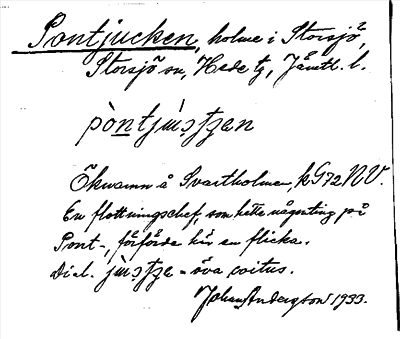 Pontjucken, holme i Storsjö,
Storsjö sn, Hede tg, Jämtl. l.
pòntjùʂtʃan
Öknamn å Svartholmen, k G72 NV.
En flottningschef, som hette någonting på
Pont-, förförde här en flicka.
Dial. jùʂtʃa = öva coitus.
Johan Andersson 1933.